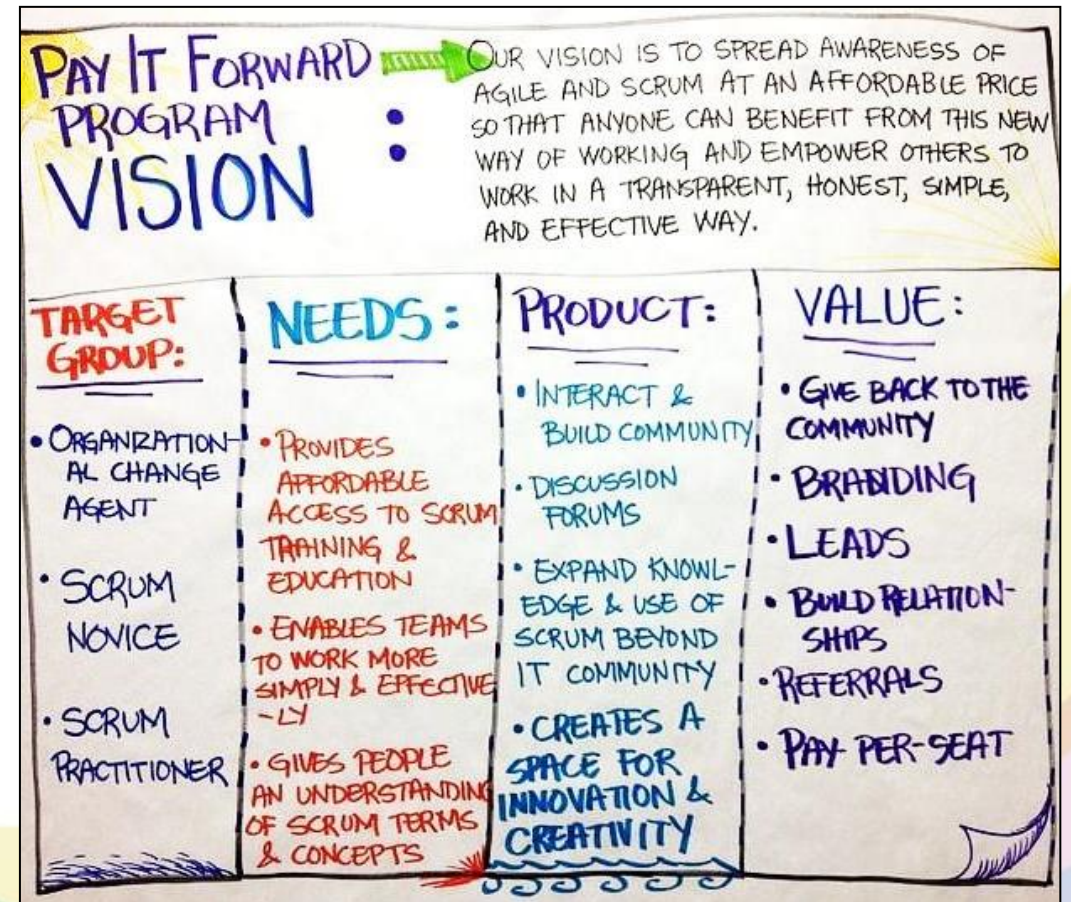 PAY IT FORWARD
PROGRAM
VISION :
OUR VISION IS TO SPREAD AWARENESS OF
AGILE AND SCRUM AT AN AFFORDABLE PRICE
SO THAT ANYONE CAN BENEFIT FROM THIS NEW
WAY OF WORKING AND EMPOWER OTHERS TO
WORK IN A TRANSPARENT, HONEST, SIMPLE,
AND EFFECTIVE WAY.
TARGET
GROUP:
• ORGANIZATION-
AL CHANGE
AGENT
• SCRUM
NOVICE
• SCRUM
PRACTITIONER
NEEDS:
• PROVIDES
AFFORDABLE
ACCESS TO SCRUM
TRAINING &
EDUCATION
• ENABLES TEAMS
TO WORK MORE
SIMPLY & EFFECTIVE
-LY
• GIVES PEOPLE
AN UNDERSTANDING
OF SCRUM TERMS
& CONCEPTS
PRODUCT:
• INTERACT &
BUILD COMMUNITY
• DISCUSSION
FORUMS
• EXPAND KNOWL-
EDGE & USE OF
SCRUM BEYOND
IT COMMUNITY
• CREATES A
SPACE FOR
INNOVATION &
CREATIVITY
VALUE:
• GIVE BACK TO THE
COMMUNITY
• BRANDING
• LEADS
• BUILD RELATION-
SHIPS
• REFERRALS
• PAY-PER-SEAT